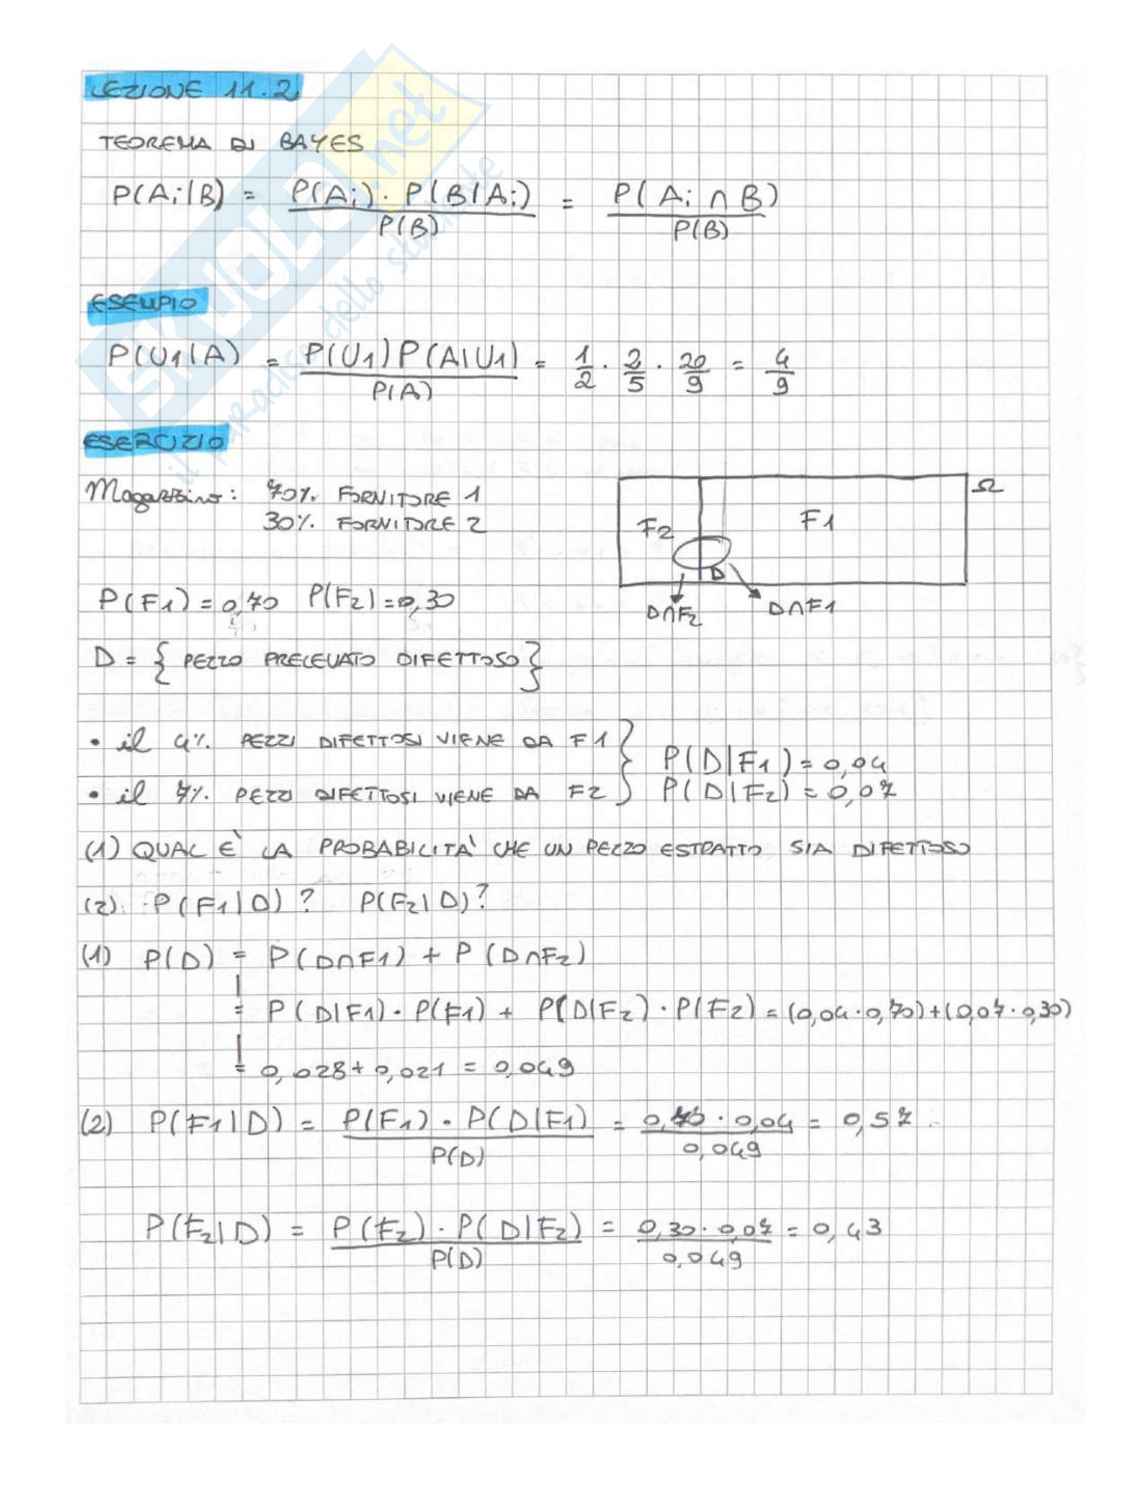 LEZIONE 11.2
TEOREMA DI BAYES
P(Ai|B) = P(Ai) · P(B|Ai) / P(B) = P(Ai ∩ B) / P(B)
ESEMPIO
P(U1|A) = P(U1) P(A|U1) / P(A) = 1/2 · 2/5 · 20/9 = 4/9
ESERCIZIO
Magazzino: 70% FORNITORE 1
30% FORNITORE 2
Ω
F2 F1
D
D∩F2 D∩F1
P(F1) = 0,70 P(F2) = 0,30
D = { PEZZO PRELEVATO DIFETTOSO }
• il 4% PEZZI DIFETTOSI VIENE DA F1 } P(D|F1) = 0,04
• il 7% PEZZI DIFETTOSI VIENE DA F2 } P(D|F2) = 0,07
(1) QUAL È LA PROBABILITÀ CHE UN PEZZO ESTRATTO SIA DIFETTOSO
(2) P(F1|D)? P(F2|D)?
(1) P(D) = P(D∩F1) + P(D∩F2)
= P(D|F1) · P(F1) + P(D|F2) · P(F2) = (0,04 · 0,70) + (0,07 · 0,30)
= 0,028 + 0,021 = 0,049
(2) P(F1|D) = P(F1) · P(D|F1) / P(D) = 0,70 · 0,04 / 0,049 = 0,57
P(F2|D) = P(F2) · P(D|F2) / P(D) = 0,30 · 0,07 / 0,049 = 0,43
SKUOLA.net
il paradiso dello studente